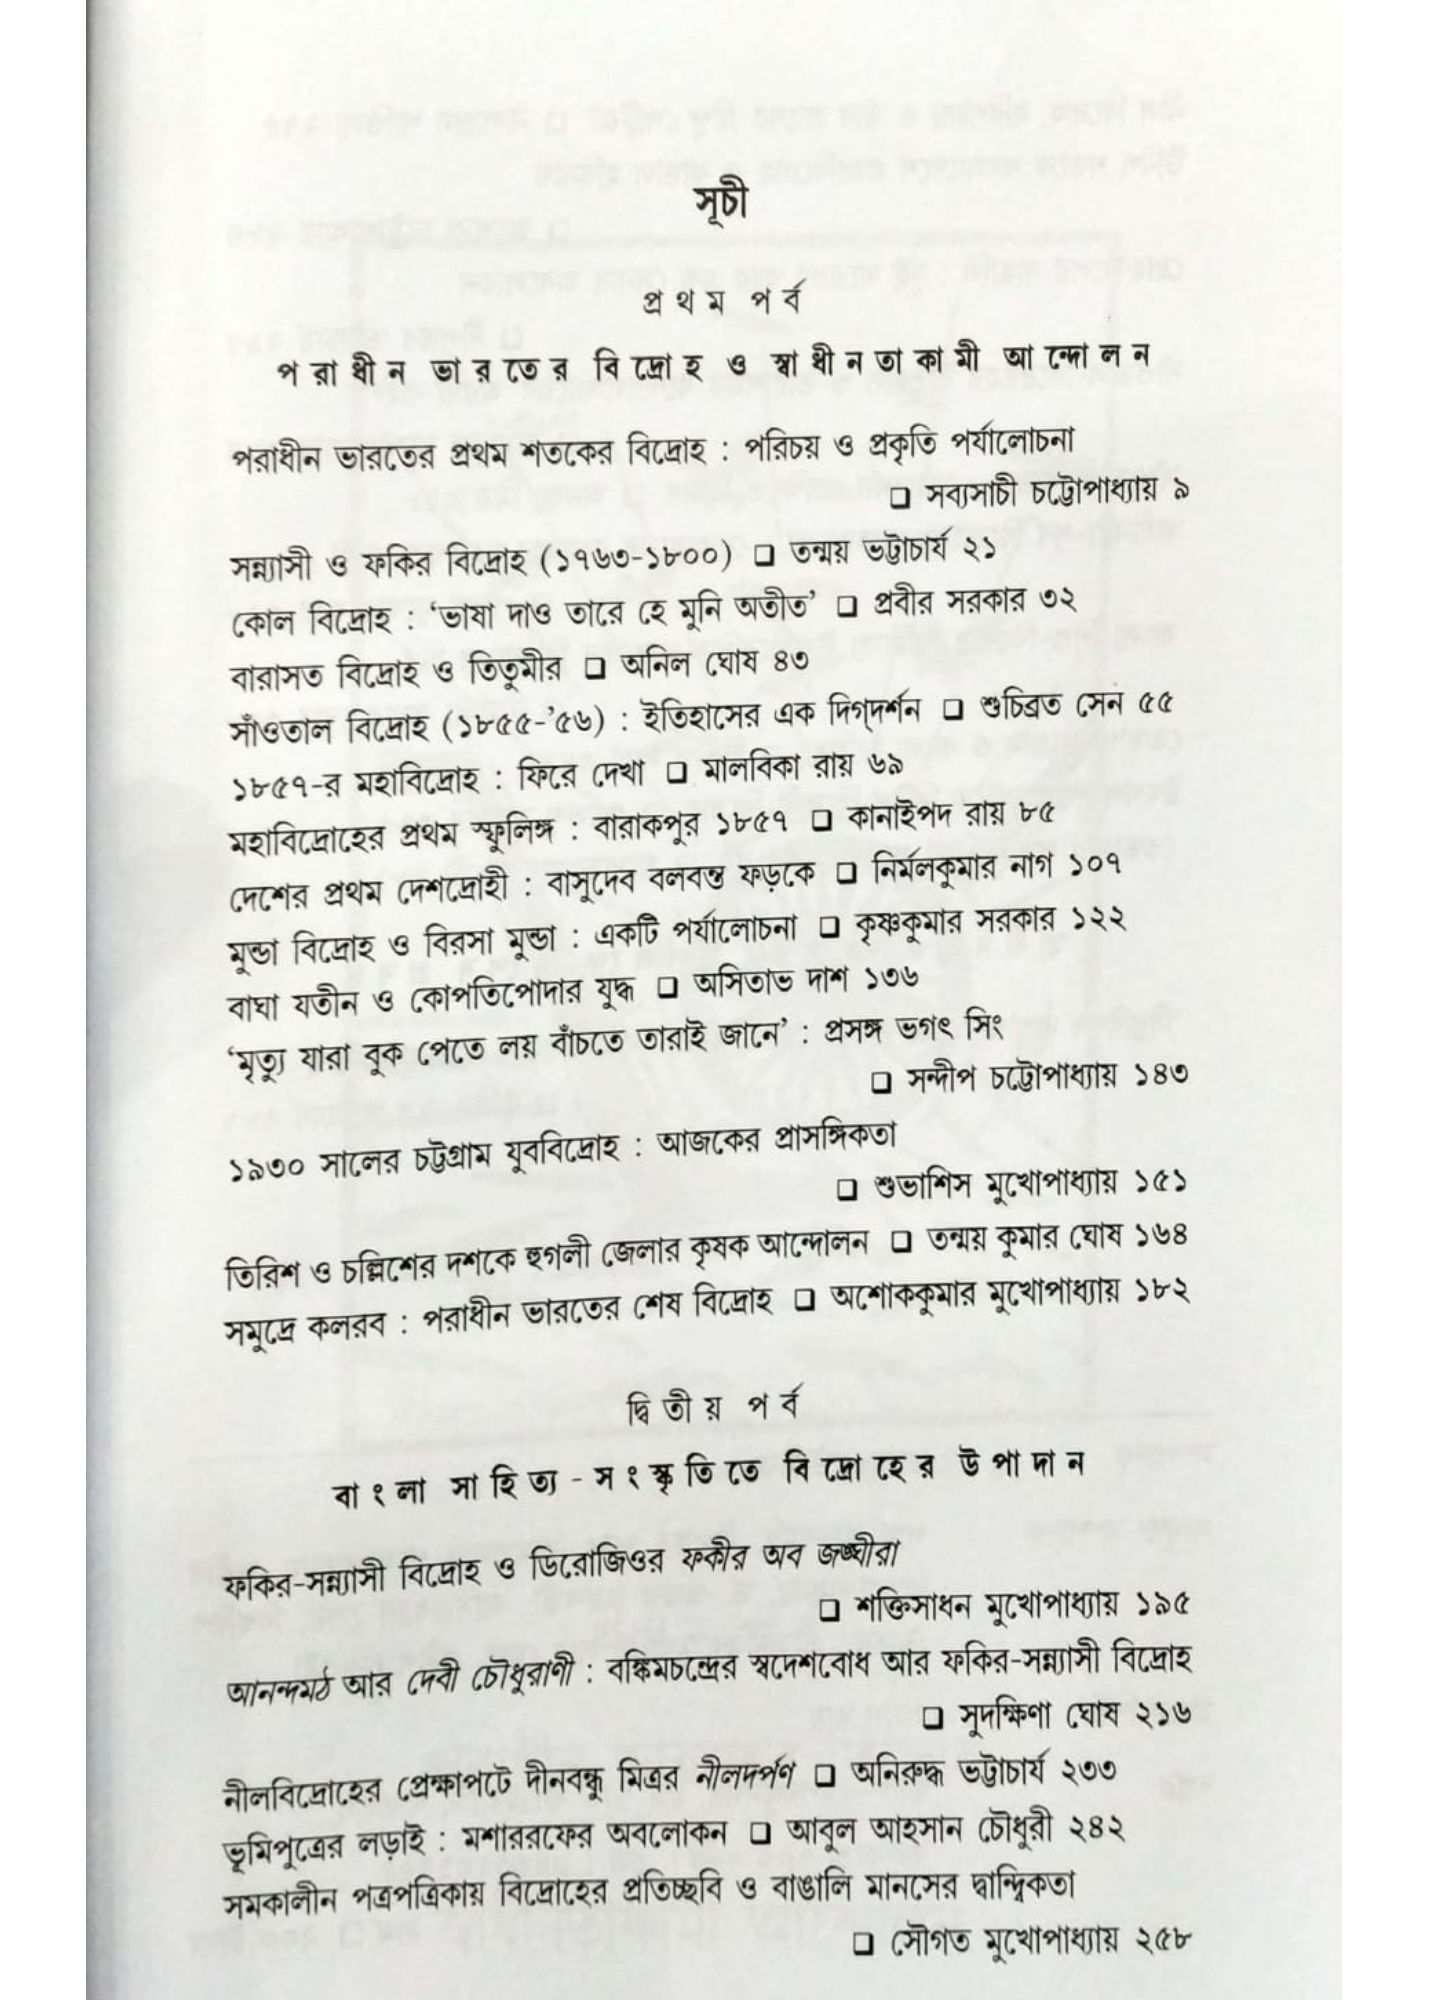 সূচী
প্রথম পর্ব
পরাধীন ভারতের বিদ্রোহ ও স্বাধীনতাকামী আন্দোলন
পরাধীন ভারতের প্রথম শতকের বিদ্রোহ : পরিচয় ও প্রকৃতি পর্যালোচনা
❑ সব্যসাচী চট্টোপাধ্যায় ৯
সন্ন্যাসী ও ফকির বিদ্রোহ (১৭৬৩-১৮০০) ❑ তন্ময় ভট্টাচার্য ২১
কোল বিদ্রোহ : ‘ভাষা দাও তারে হে মুনি অতীত’ ❑ প্রবীর সরকার ৩২
বারাসত বিদ্রোহ ও তিতুমীর ❑ অনিল ঘোষ ৪৩
সাঁওতাল বিদ্রোহ (১৮৫৫-’৫৬) : ইতিহাসের এক দিগ্‌দর্শন ❑ শুচিব্রত সেন ৫৫
১৮৫৭-র মহাবিদ্রোহ : ফিরে দেখা ❑ মালবিকা রায় ৬৯
মহাবিদ্রোহের প্রথম স্ফুলিঙ্গ : বারাকপুর ১৮৫৭ ❑ কানাইপদ রায় ৮৫
দেশের প্রথম দেশদ্রোহী : বাসুদেব বলবন্ত ফড়কে ❑ নির্মলকুমার নাগ ১০৭
মুন্ডা বিদ্রোহ ও বিরসা মুন্ডা : একটি পর্যালোচনা ❑ কৃষ্ণকুমার সরকার ১২২
বাঘা যতীন ও কোপতিপোদার যুদ্ধ ❑ অসিতাভ দাশ ১৩৬
‘মৃত্যু যারা বুক পেতে লয় বাঁচতে তারাই জানে’ : প্রসঙ্গ ভগৎ সিং
❑ সন্দীপ চট্টোপাধ্যায় ১৪৩
১৯৩০ সালের চট্টগ্রাম যুববিদ্রোহ : আজকের প্রাসঙ্গিকতা
❑ শুভাশিস মুখোপাধ্যায় ১৫১
তিরিশ ও চল্লিশের দশকে হুগলী জেলার কৃষক আন্দোলন ❑ তন্ময় কুমার ঘোষ ১৬৪
সমুদ্রে কলরব : পরাধীন ভারতের শেষ বিদ্রোহ ❑ অশোককুমার মুখোপাধ্যায় ১৮২
দ্বিতীয় পর্ব
বাংলা সাহিত্য-সংস্কৃতিতে বিদ্রোহের উপাদান
ফকির-সন্ন্যাসী বিদ্রোহ ও ডিরোজিওর ফকীর অব জঙ্ঘীরা
❑ শক্তিসাধন মুখোপাধ্যায় ১৯৫
আনন্দমঠ আর দেবী চৌধুরাণী : বঙ্কিমচন্দ্রের স্বদেশবোধ আর ফকির-সন্ন্যাসী বিদ্রোহ
❑ সুদক্ষিণা ঘোষ ২১৬
নীলবিদ্রোহের প্রেক্ষাপটে দীনবন্ধু মিত্রর নীলদর্পণ ❑ অনিরুদ্ধ ভট্টাচার্য ২৩৩
ভূমিপুত্রের লড়াই : মশাররফের অবলোকন ❑ আবুল আহসান চৌধুরী ২৪২
সমকালীন পত্রপত্রিকায় বিদ্রোহের প্রতিচ্ছবি ও বাঙালি মানসের দ্বান্দ্বিকতা
❑ সৌগত মুখোপাধ্যায় ২৫৮